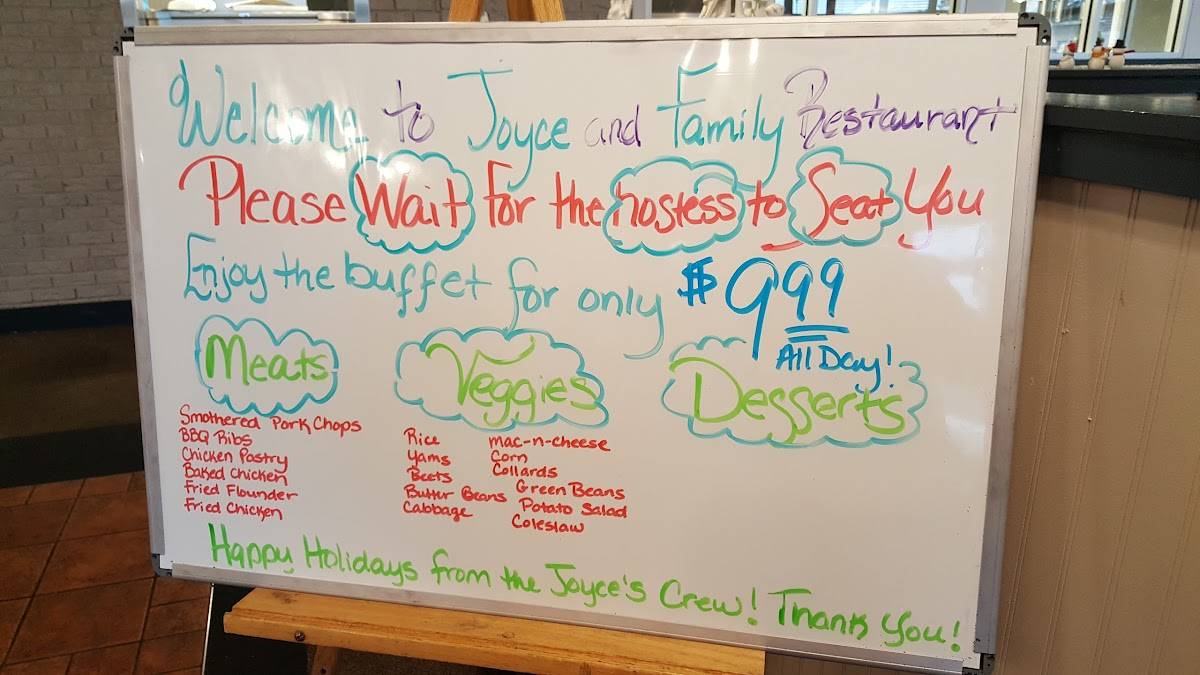 Welcome to Joyce and Family Restaurant
Please Wait for the hostess to Seat You
Enjoy the buffet for only $9.99
All Day!
Meats
Smothered Pork Chops
BBQ Ribs
Chicken Pastry
Baked Chicken
Fried Flounder
Fried Chicken
Veggies
Rice
Yams
Beets
Butter Beans
Cabbage
mac-n-cheese
Corn
Collards
Green Beans
Potato Salad
Coleslaw
Desserts
Happy Holidays from the Joyce's Crew! Thank You!